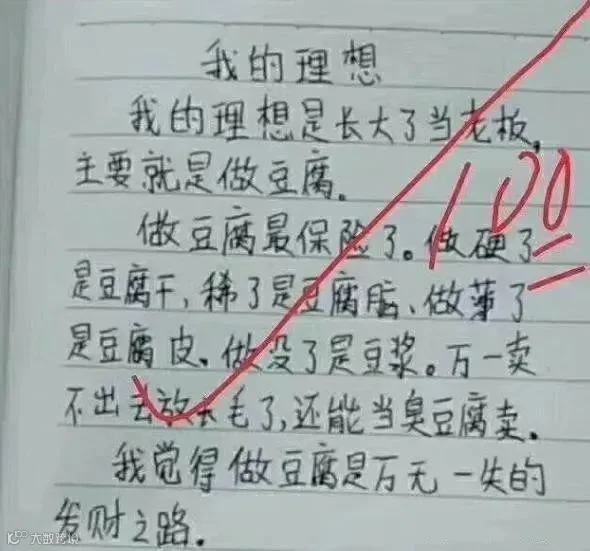 我的理想
我的理想是长大了当老板,
主要就是做豆腐。
做豆腐最保险了。做硬了
是豆腐干,稀了是豆腐脑、做薄了
是豆腐皮、做没了是豆浆。万一卖
不出去放长毛了,还能当臭豆腐卖。
我觉得做豆腐是万无一失的
发财之路。
100
大数跨境